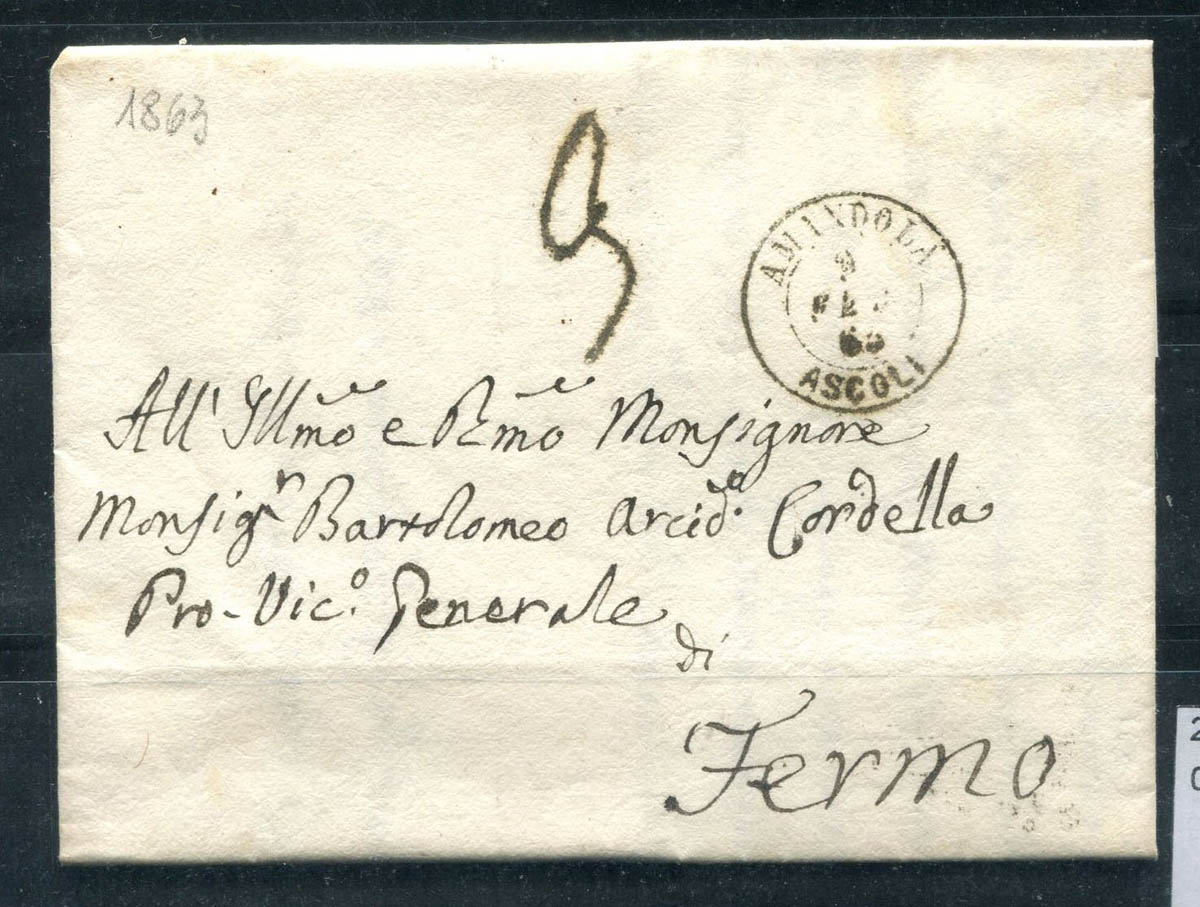 1863
AMANDOLA
FEB
63
ASCOLI
All' Illmo e Rmo Monsignore
Monsigr Bartolomeo Arcido. Cordella
Pro-Vico. Generale
di
Fermo